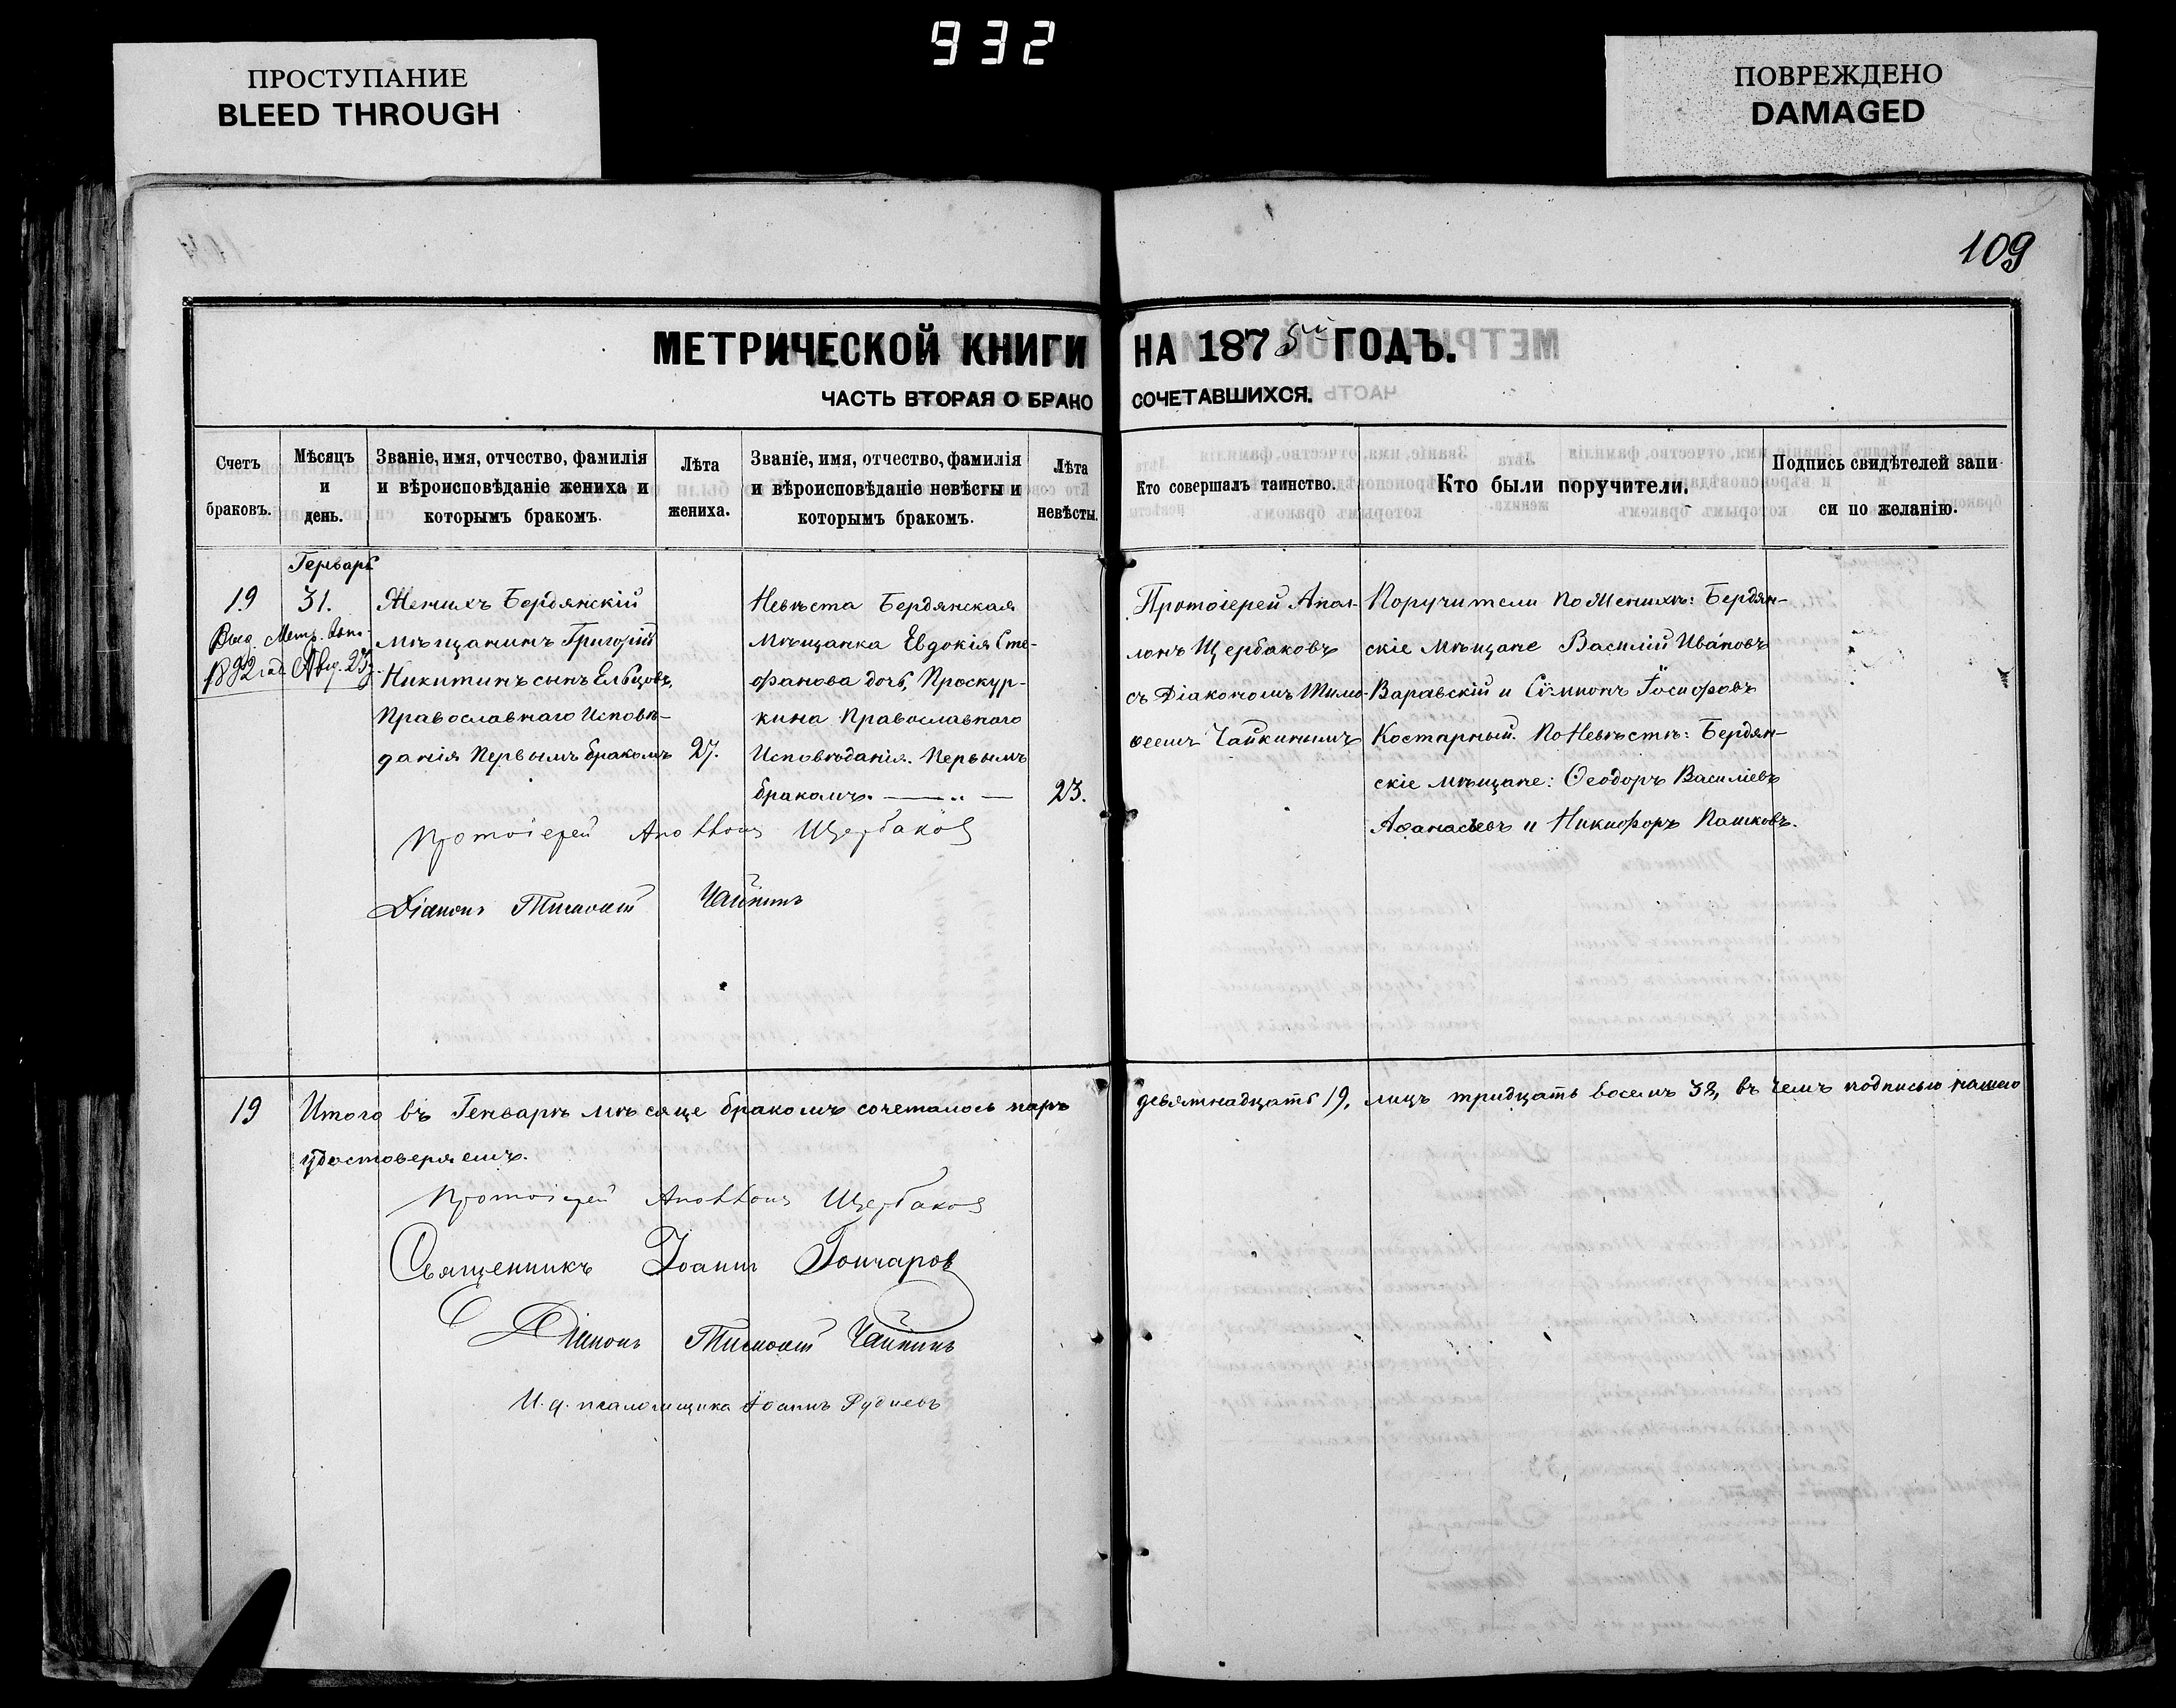 932
ПРОСТУПАНИЕ
BLEED THROUGH
ПОВРЕЖДЕНО
DAMAGED
109
МЕТРИЧЕСКОЙ КНИГИ НА 1875й ГОДЪ.
ЧАСТЬ ВТОРАЯ О БРАКО СОЧЕТАВШИХСЯ.
Счетъ
браковъ.
Мѣсяцъ
и
день.
Званіе, имя, отчество, фамилія
и вѣроисповѣданіе жениха и
которымъ бракомъ.
Лѣта
жениха.
Званіе, имя, отчество, фамилія
и вѣроисповѣданіе невѣсты и
которымъ бракомъ.
Лѣта
невѣсты.
Кто совершалъ таинство.
Кто были поручители.
Подпись свидѣтелей запи
си по желанію.
Генварь
19
31.
Выд. Метр.
1892 год Авг. 23
Женихъ Бердянскій
мѣщанинъ Григорій
Никитинъ сынъ Ельцовъ,
Православнаго Исповѣ-
данія Первымъ бракомъ
27.
Невѣста Бердянская
Мѣщанка Евдокія Сте-
фанова дочь, Проскур-
кина Православнаго
Исповѣданія. Первымъ
бракомъ.
23.
Протоіерей Апол-
лонъ Щербаковъ
съ Діакономъ Тимо-
ѳеемъ Чайкинымъ
Поручители по Женихѣ: Бердян-
скіе мѣщане Василій Ивановъ
Варавскій и Сѵмионъ Іосифовъ
Костарный. По Невѣстѣ: Бердян-
скіе мѣщане: Ѳеодоръ Василіевъ
Аѳанасьевъ и Никифоръ Пашковъ.
Протоіерей Аполлонъ Щербаковъ
Діаконъ Тимоѳей Чайкинъ
19
Итого въ Генварѣ мѣсяце бракомъ сочеталось паръ девятнадцать 19, лицъ тридцать восемь 38, въ чемъ подписью нашею
удостоверяемъ.
Протоіерей Аполлонъ Щербаковъ
Священникъ Іоаннъ Гончаровъ
Діаконъ Тимоѳей Чайкинъ
И. д. псаломщика Іоаннъ Рудневъ